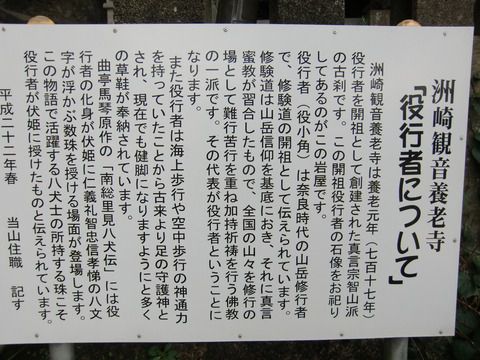 洲崎観音養老寺
「役行者について」
洲崎観音養老寺は養老元年（七百十七年）
役行者を開祖として創建された真言宗智山派
の古刹です。この開祖役行者の石像をお祀り
してあるのがこの岩屋です。
役行者（役小角）は奈良時代の山岳修行者
で、修験道の開祖として伝えられています。
修験道は山岳信仰を基底におき、それに真言
密教が習合したもので、全国の山々を修行の
場として難行苦行を重ね加持祈祷を行う佛教
の一派です。その代表が役行者ということに
なります。
また役行者は海上歩行や空中歩行の神通力
を持っていたことから古来より足の守護神と
され、現在でも健脚になりますようにと多く
の草鞋が奉納されています。
曲亭馬琴原作の「南総里見八犬伝」には役
行者の化身が伏姫に仁義礼智忠信孝悌の八文
字が浮かぶ数珠を授ける場面が登場します。
この物語で活躍する八犬士の所持する珠こそ
役行者が伏姫に授けたものと伝えられています。
平成二十二年春　当山住職　記す